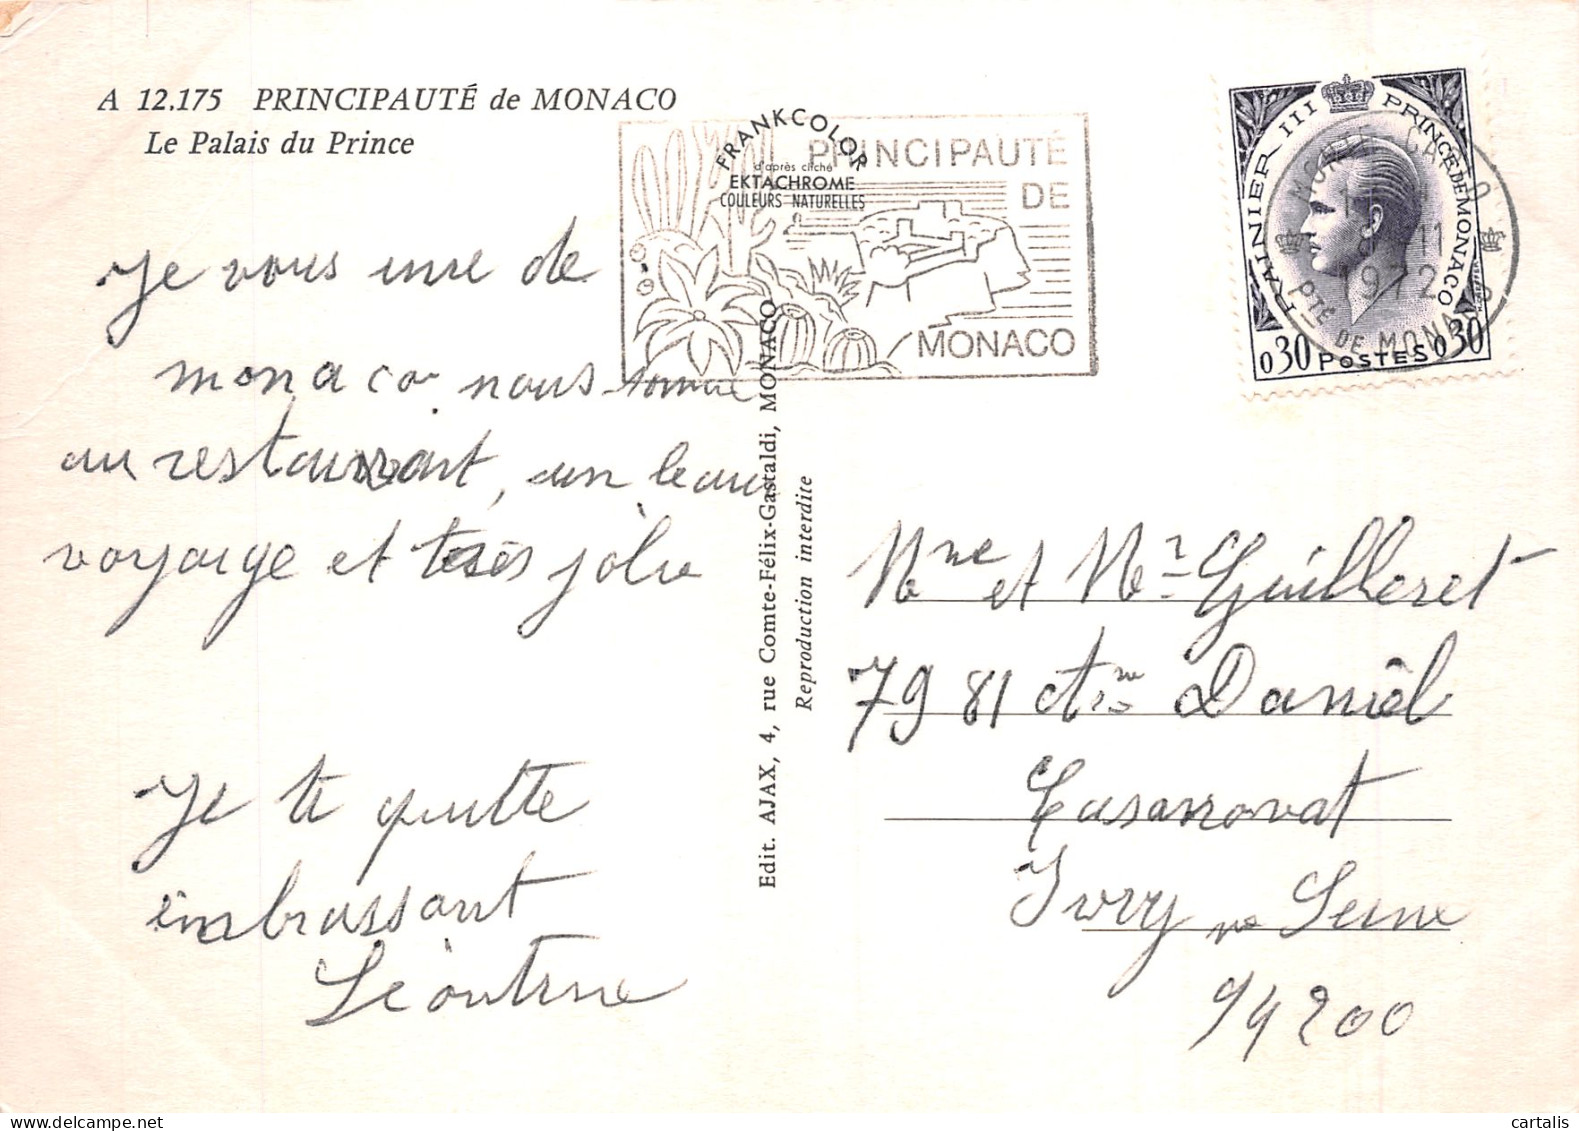 A 12.175 PRINCIPAUTÉ de MONACO
Le Palais du Prince
FRANKCOLOR
d'après cliché
EKTACHROME
COULEURS NATURELLES
PRINCIPAUTÉ
DE
MONACO
RAINIER III PRINCE DE MONACO
0,30 POSTES 0,30
MONTE CARLO
1972
PTÉ DE MONACO
Je vous de
monaco nous somme
au restaurant, un beau
voyage et très jolie
Je te quitte
en brassant
Léontine
Edit. AJAX, 4, rue Comte-Félix-Gastaldi, MONACO
Reproduction interdite
Mme et Mr Guilleret
79 81 Daniel
Casanovat
Ivry Seine
94200
cartalis
delcampe.net